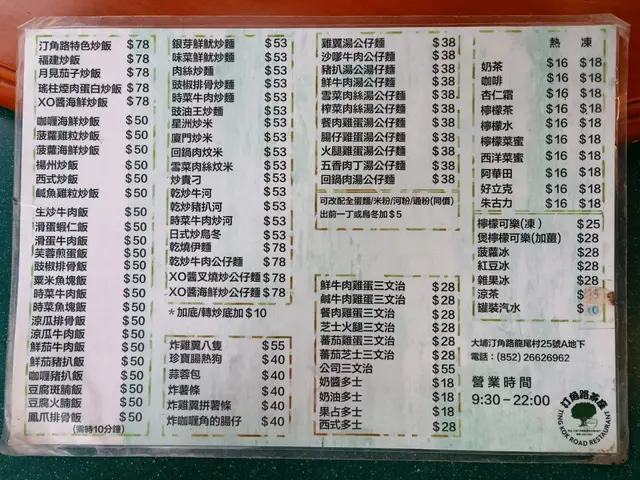 汀角路特色炒飯 $78
福建炒飯 $78
月見茄子炒飯 $78
瑤柱煙肉蛋白炒飯 $78
XO醬海鮮炒飯 $78
咖喱海鮮炒飯 $50
菠蘿雞粒炒飯 $50
菠蘿海鮮炒飯 $50
楊州炒飯 $50
西式炒飯 $50
鹹魚雞粒炒飯 $50
生炒牛肉飯 $50
滑蛋蝦仁飯 $50
滑蛋牛肉飯 $50
芙蓉煎蛋飯 $50
豉椒排骨飯 $50
粟米魚塊飯 $50
時菜牛肉飯 $50
時菜魚塊飯 $50
涼瓜排骨飯 $50
涼瓜牛肉飯 $50
鮮茄牛肉飯 $50
鮮茄豬扒飯 $50
咖喱豬扒飯 $50
豆腐斑腩飯 $50
豆腐火腩飯 $50
鳳爪排骨飯 $50
(需時10分鐘)
銀芽鮮魷炒麵 $53
味菜鮮魷炒麵 $53
肉絲炒麵 $53
豉椒排骨炒麵 $53
時菜牛肉炒麵 $53
豉油王炒麵 $53
星洲炒米 $53
廈門炒米 $53
回鍋肉炆米 $53
雪菜肉絲炆米 $53
炒貴刁 $53
乾炒牛河 $53
乾炒豬扒河 $53
時菜牛肉炒河 $53
日式炒烏冬 $53
乾燒伊麵 $78
乾炒牛肉公仔麵 $53
XO醬叉燒炒公仔麵 $78
XO醬海鮮炒公仔麵 $78
*加底/轉炒底加 $10
炸雞翼八隻 $55
珍寶腸熱狗 $40
蒜蓉包 $40
炸薯條 $40
炸雞翼拼薯條 $40
炸咖喱角的腸仔 $40
雞翼湯公仔麵 $38
沙嗲牛肉公仔麵 $38
豬扒湯公湯仔麵 $38
鮮牛肉湯公仔麵 $38
雪菜肉絲湯公仔麵 $38
榨菜肉絲湯公仔麵 $38
餐肉雞蛋湯公仔麵 $38
腸仔雞蛋湯公仔麵 $38
火腿雞蛋湯公仔麵 $38
五香肉丁湯公仔麵 $38
回鍋肉湯公仔麵 $38
可改配全蛋麵/米粉/河粉/通粉(同價)
出前一丁或烏冬加$5
鮮牛肉雞蛋三文治 $28
鹹牛肉雞蛋三文治 $28
餐肉雞蛋三文治 $28
芝士火腿三文治 $28
蕃茄雞蛋三文治 $28
蕃茄芝士三文治 $28
公司三文治 $55
奶醬多士 $18
奶油多士 $18
果占多士 $18
西式多士 $28
熱 凍
奶茶 $16 $18
咖啡 $16 $18
杏仁霜 $16 $18
檸檬茶 $16 $18
檸檬水 $16 $18
檸檬菜蜜 $16 $18
西洋菜蜜 $16 $18
阿華田 $16 $18
好立克 $16 $18
朱古力 $16 $18
檸檬可樂(凍) $25
煲檸檬可樂(加薑) $28
菠蘿冰 $28
紅豆冰 $28
雜果冰 $28
涼茶
罐裝汽水
大埔汀角路龍尾村25號A地下
電話:(852) 26626962
營業時間
9:30-22:00
汀角路茶座
TING KOK ROAD RESTAURANT